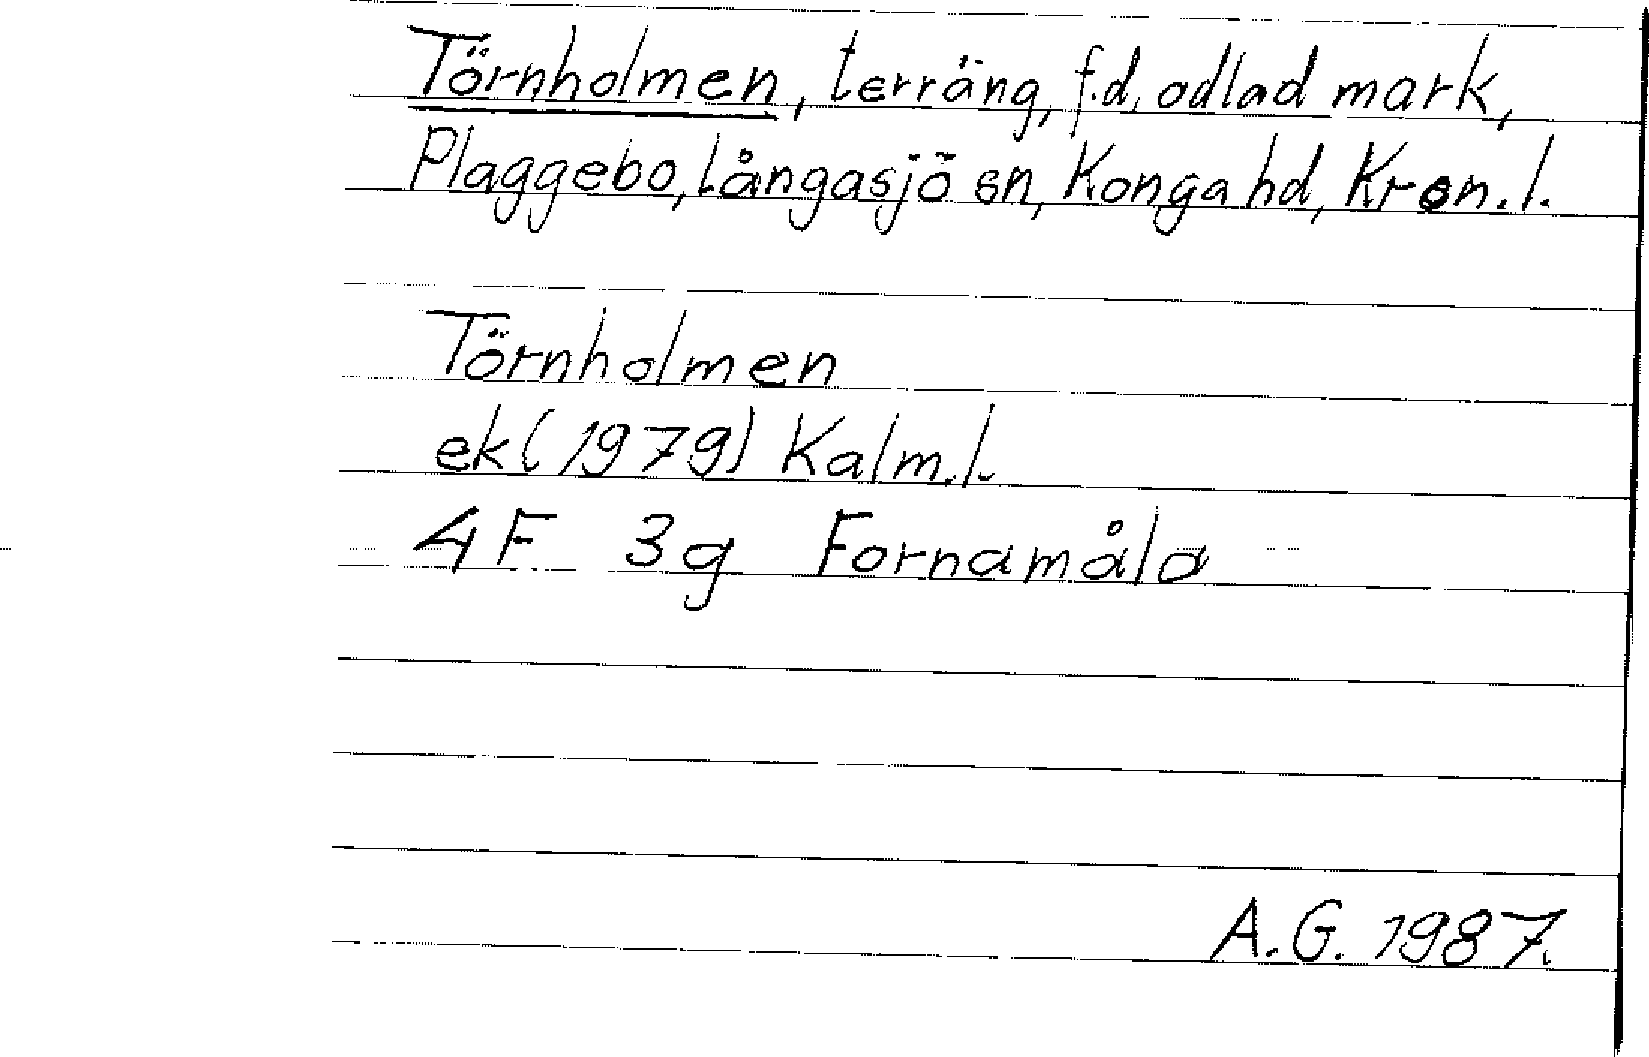 Törnholmen, terräng, f.d. odlad mark,
Plaggebo, Långasjö sn, Konga hd, Kron.l.
Törnholmen
ek (1979) Kalm.l.
4F 3g Fornamåla
A.G. 1987.